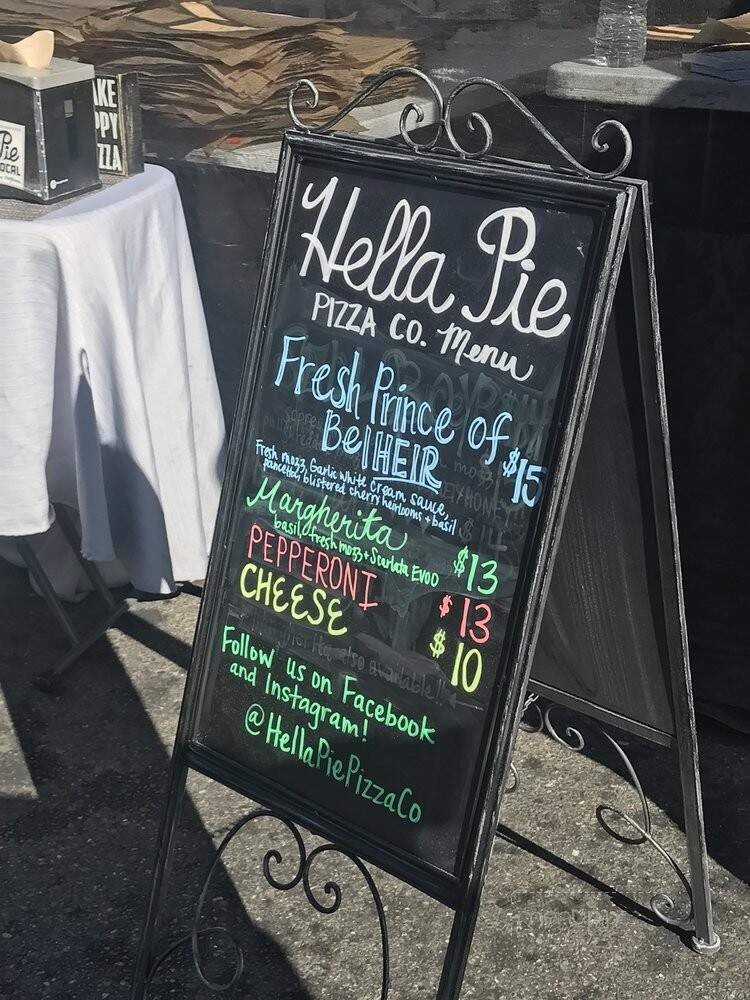 AKE
PPY
ZZA
Pie
OCAL
Hella Pie
PIZZA CO. Menu
Fresh Prince of
BelHEIR $15
Fresh mozz, Garlic White Cream Sauce,
pancetta, blistered cherry heirlooms + basil
Margherita $13
basil, fresh mozz + Scarlata EVOO
PEPPERONI $13
CHEESE $10
also available!!
Follow us on Facebook
and Instagram!
@HellaPiePizzaCo